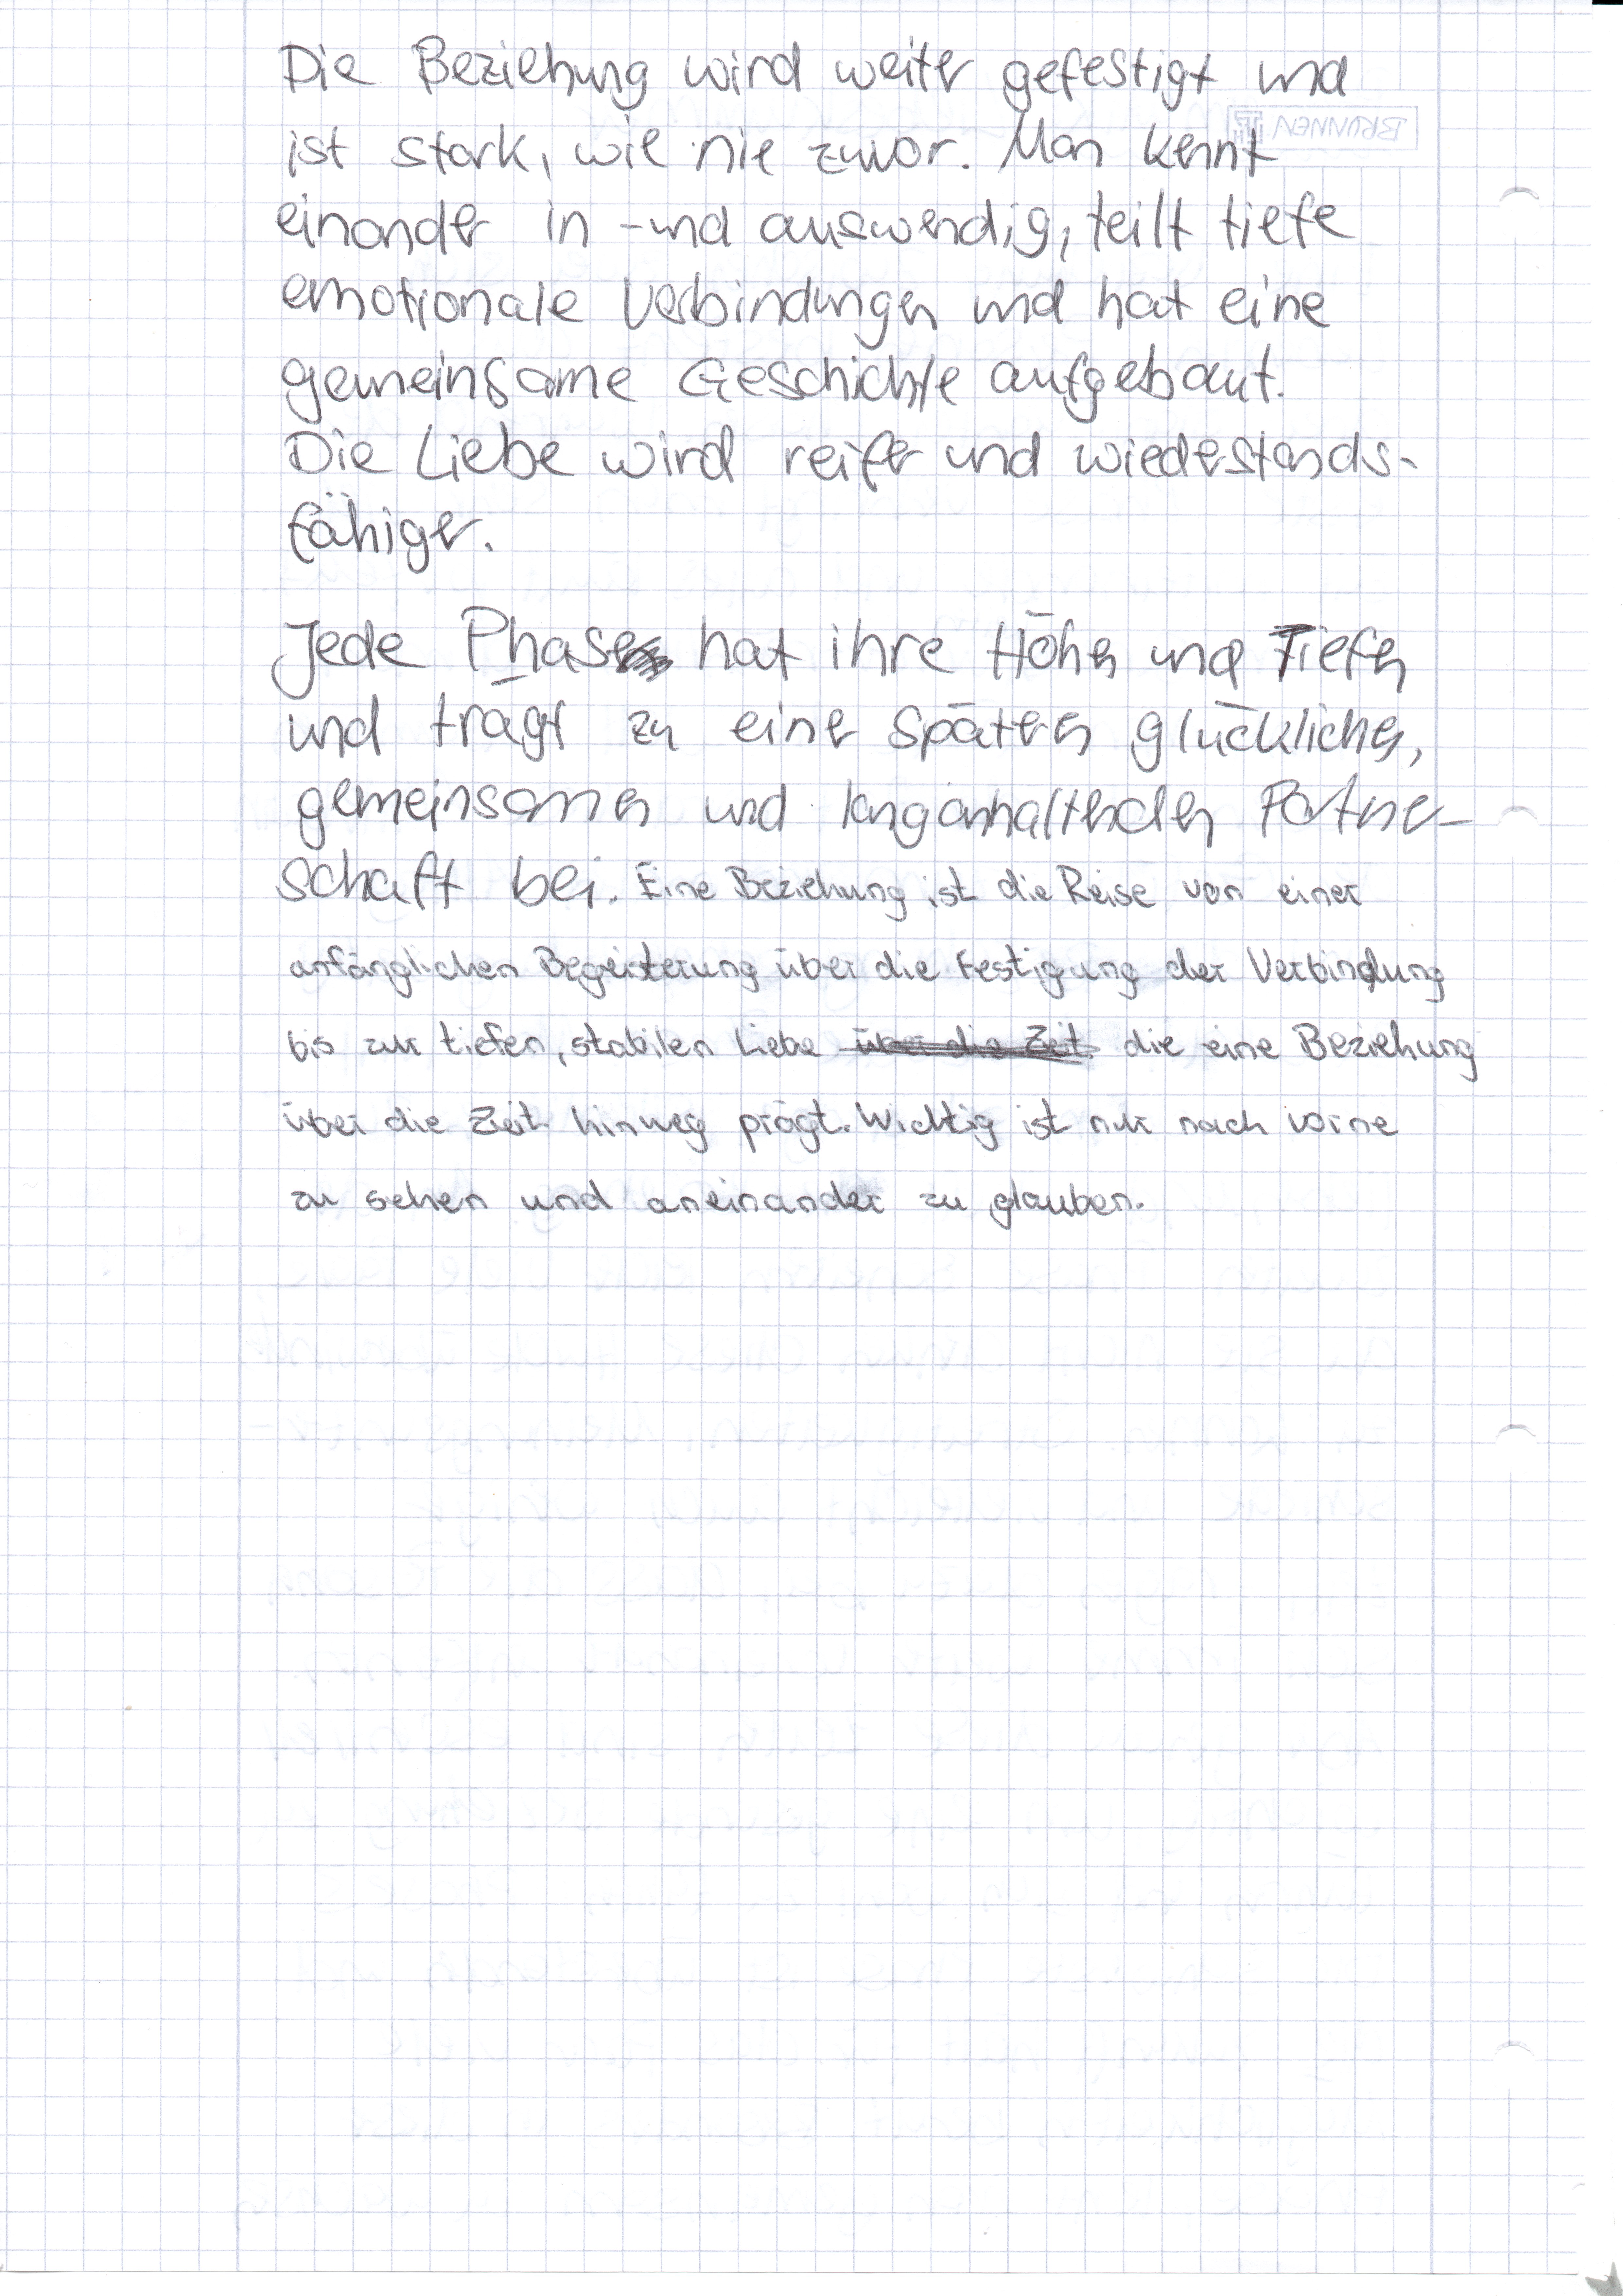 Die Beziehung wird weiter gefestigt und
BRUNNEN
ist stark, wie nie zuvor. Man kennt
einander in -und auswendig, teilt tiefe
emotionale Verbindungen und hat eine
gemeinsame Geschichte aufgebaut.
Die Liebe wird reifer und wiederstands-
fähiger.
Jede Phase hat ihre Höhen und Tiefen
und trägt zu einer späteren glücklichen,
gemeinsamen und langanhaltenden Partner-
schaft bei. Eine Beziehung ist die Reise von einer
anfänglichen Begeisterung über die Festigung der Verbindung
bis zur tiefen, stabilen Liebe über die Zeit. die eine Beziehung
über die Zeit hinweg prägt. Wichtig ist nur nach vorne
zu sehen und aneinander zu glauben.